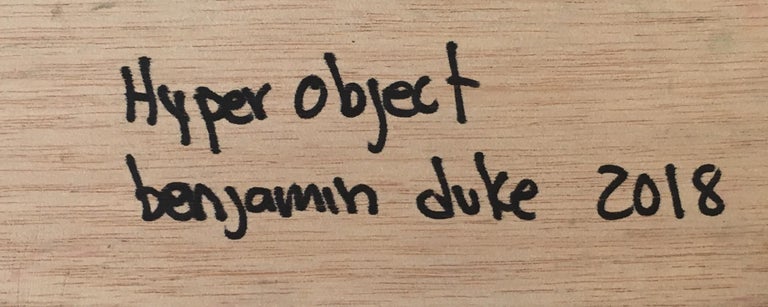 Hyper Object
benjamin duke 2018